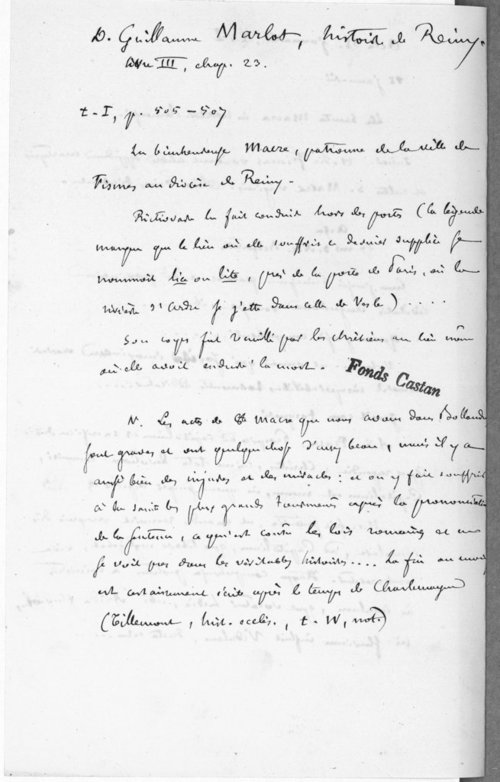 D. Guillaume Marlot, histoire de Reims.
livre III, chap. 23.
t. I, p. 505-507
La bienheureuse Macre, patronne de la ville de
Fismes au diocèse de Reims.
Rictiovare la fait conduire hors des ports (la légende
marque que le lieu où elle souffrit ce dernier supplice se
nommoit lice ou lite, près de la porte de Paris, où la
rivière d'Ardre se jette dans celle de Vesle) ....
Son corps fut recueilli par les chrétiens au lieu même
où elle avoit enduré la mort.
Fonds Castan
N. Les actes de Ste Macre que nous avons dans Bolland
sont graves et ont quelque chose d'assez beau, mais il y a
aussi bien des injures et des miracles : et on y fait souffrir
à la sainte les plus grands tourmens après la prononciation
de la sentence, ce qui est contre les lois romaines et ne
se voit pas dans les véritables histoires.... La fin au moins
est certainement écrite après le temps de Charlemagne
(Tillemont, hist. ecclés., t. IV, not.)